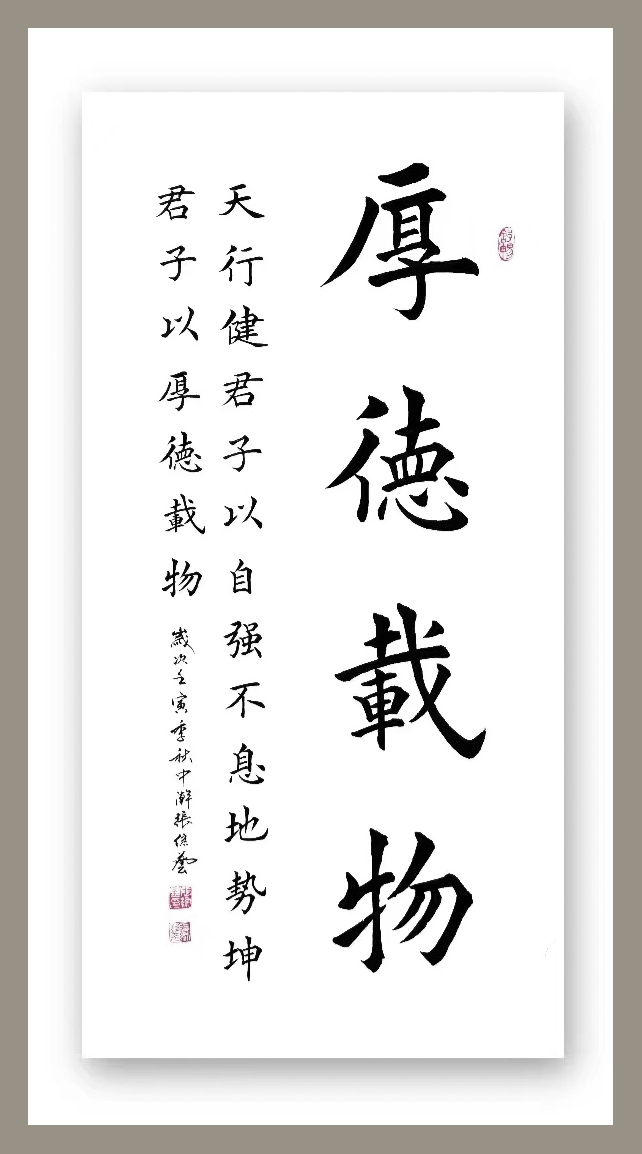 厚德載物
天行健君子以自强不息地勢坤
君子以厚德載物
歲次壬寅季秋中澣張保雲